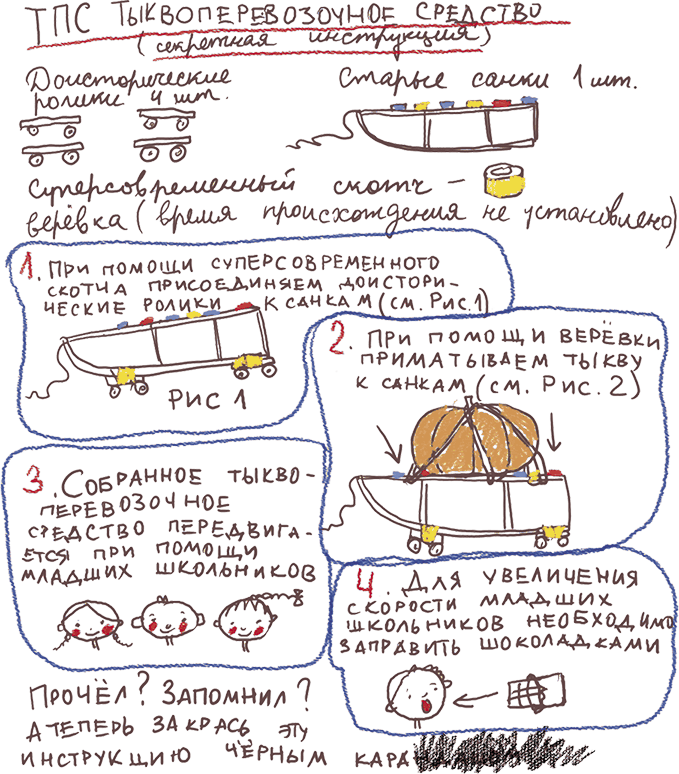 ТПС ТЫКВОПЕРЕВОЗОЧНОЕ СРЕДСТВО
(секретная инструкция)
Доисторические
ролики 4 шт.
Старые санки 1 шт.
Суперсовременный скотч –
верёвка (время происхождения не установлено)
1. ПРИ ПОМОЩИ СУПЕРСОВРЕМЕННОГО
СКОТЧА ПРИСОЕДИНЯЕМ ДОИСТОРИ-
ЧЕСКИЕ РОЛИКИ К САНКАМ (СМ. РИС. 1)
РИС 1
2. ПРИ ПОМОЩИ ВЕРЁВКИ
ПРИМАТЫВАЕМ ТЫКВУ
К САНКАМ (СМ. РИС. 2)
3. СОБРАННОЕ ТЫКВО-
ПЕРЕВОЗОЧНОЕ
СРЕДСТВО ПЕРЕДВИГА-
ЕТСЯ ПРИ ПОМОЩИ
МЛАДШИХ ШКОЛЬНИКОВ
4. ДЛЯ УВЕЛИЧЕНИЯ
СКОРОСТИ МЛАДШИХ
ШКОЛЬНИКОВ НЕОБХОДИМО
ЗАПРАВИТЬ ШОКОЛАДКАМИ
ПРОЧЁЛ? ЗАПОМНИЛ?
А ТЕПЕРЬ ЗАКРАСЬ ЭТУ
ИНСТРУКЦИЮ ЧЁРНЫМ